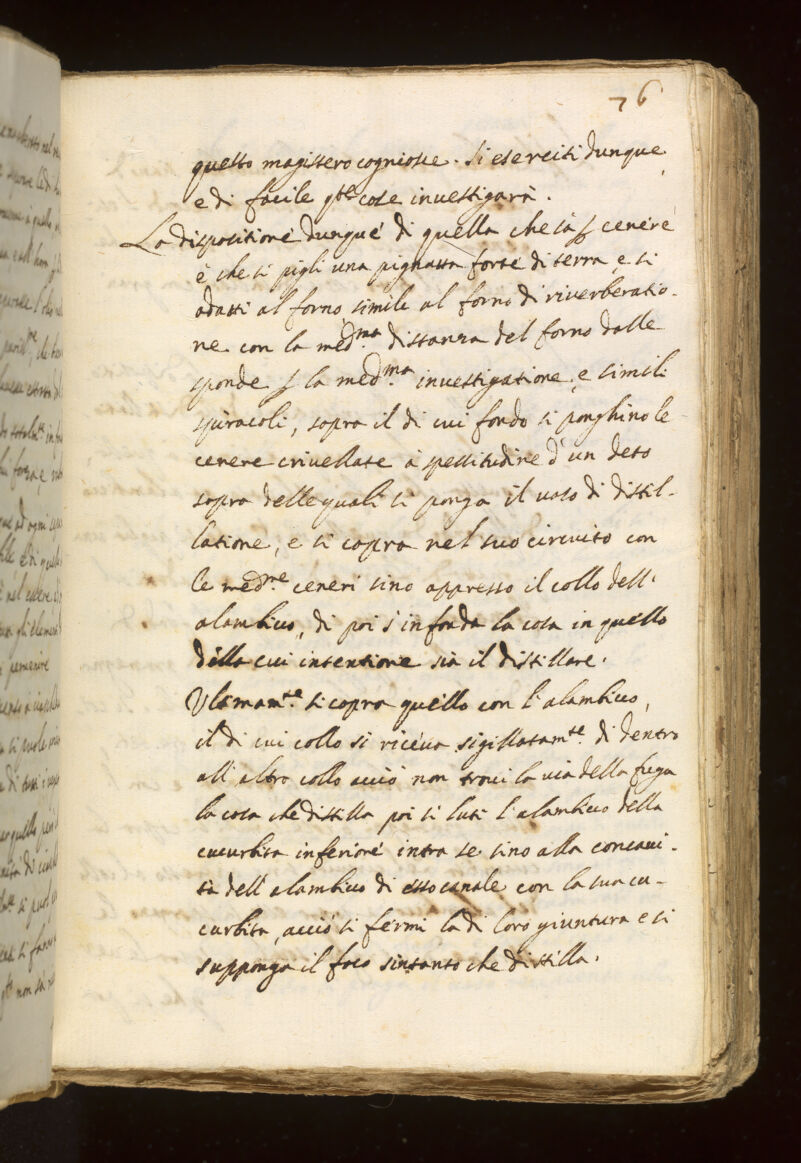 76
questo magistero cogniosce. Si eserciti dunque
e di facile q.te cose investigarà.
La dispositione dunque di quella che si fà p cenere
è che si pigli una pignatta forte di terra e si
adatti al forno simile al forno di riverberatio-
ne con la med.ma distanza del forno dalle
sponde p la med.ma investigatione, e simili
spiracoli, sopra il di cui fondo si ponghino le
cenere crivellate à spessitudine d'un deto
sopra delle quali si ponga il vaso di distil-
latione, e si copra nel suo circuito con
le med.me ceneri sino appresso il collo dell'
alambico, di poi s'infonda la cosa in quello
della cui intentione sia il distillare.
Ultimam.te si copra quello con l'alambico,
il di cui collo si riceva sigillatam.te di dentro
all'altro collo acciò non trovi la via della fuga
la cosa che distilla poi si luti l'alambico della
cucurbita inferiore intra se sino alla concavi-
tà dell'alambico di esso canale con la sua cu-
curbita, acciò si fermi la di loro giuntura e si
supponga il foco sintanto che distilla.